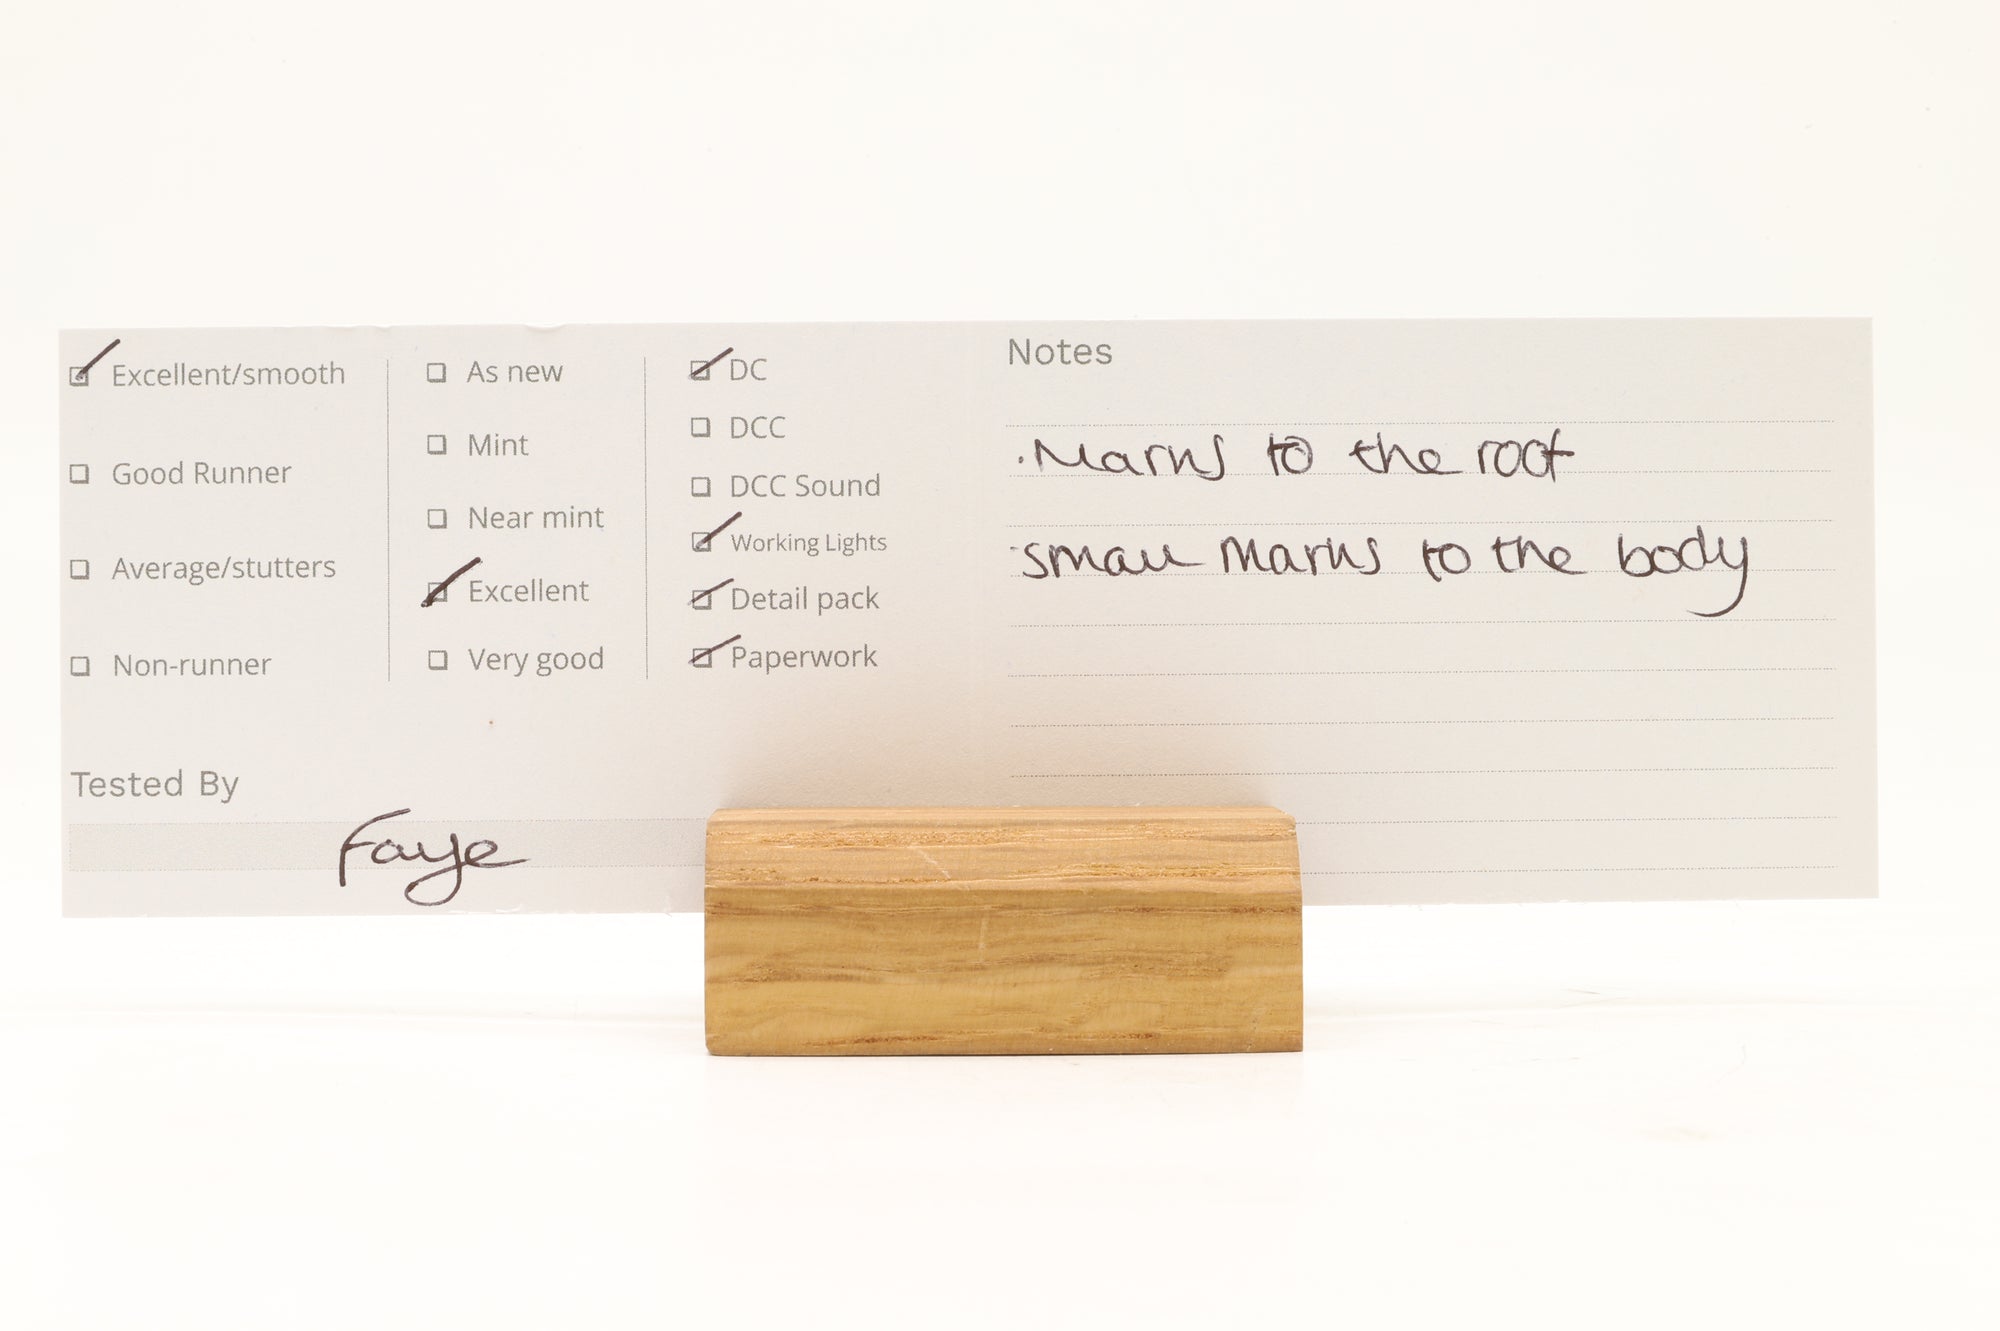 Excellent/smooth
Good Runner
Average/stutters
Non-runner
As new
Mint
Near mint
Excellent
Very good
DC
DCC
DCC Sound
Working Lights
Detail pack
Paperwork
Tested By
Faye
Notes
· Marks to the roof
· small Marks to the body